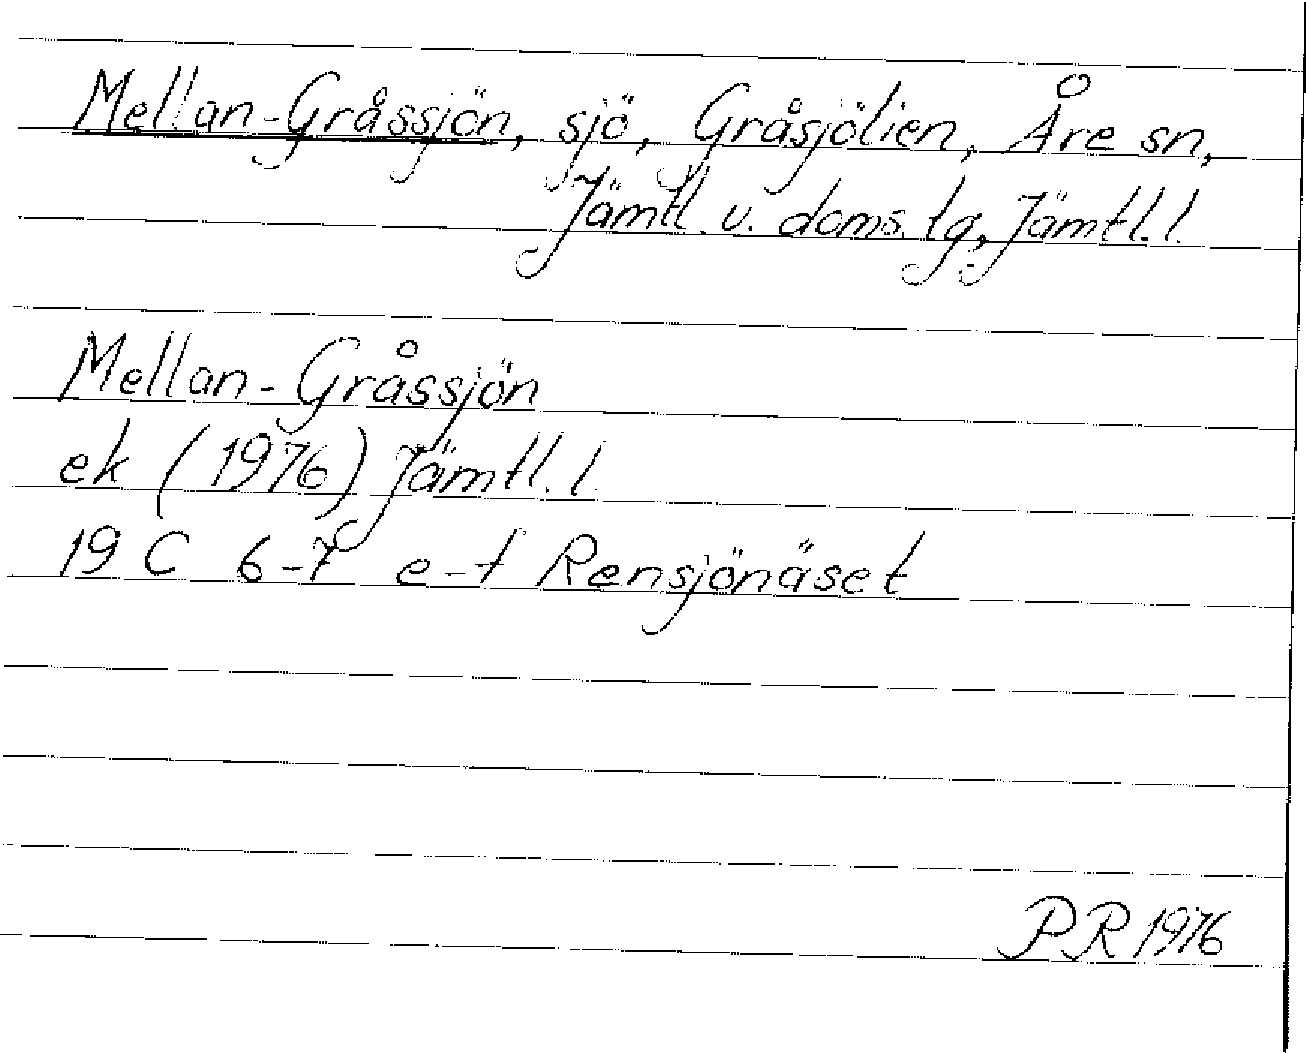 Mellan-Gråssjön, sjö, Gråsjölien, Åre sn,
Jämtl. v. doms. lg, Jämtl. l.
Mellan-Gråssjön
ek (1976) Jämtl. l.
19 C 6-7 e-f Rensjönäset
PR 1976